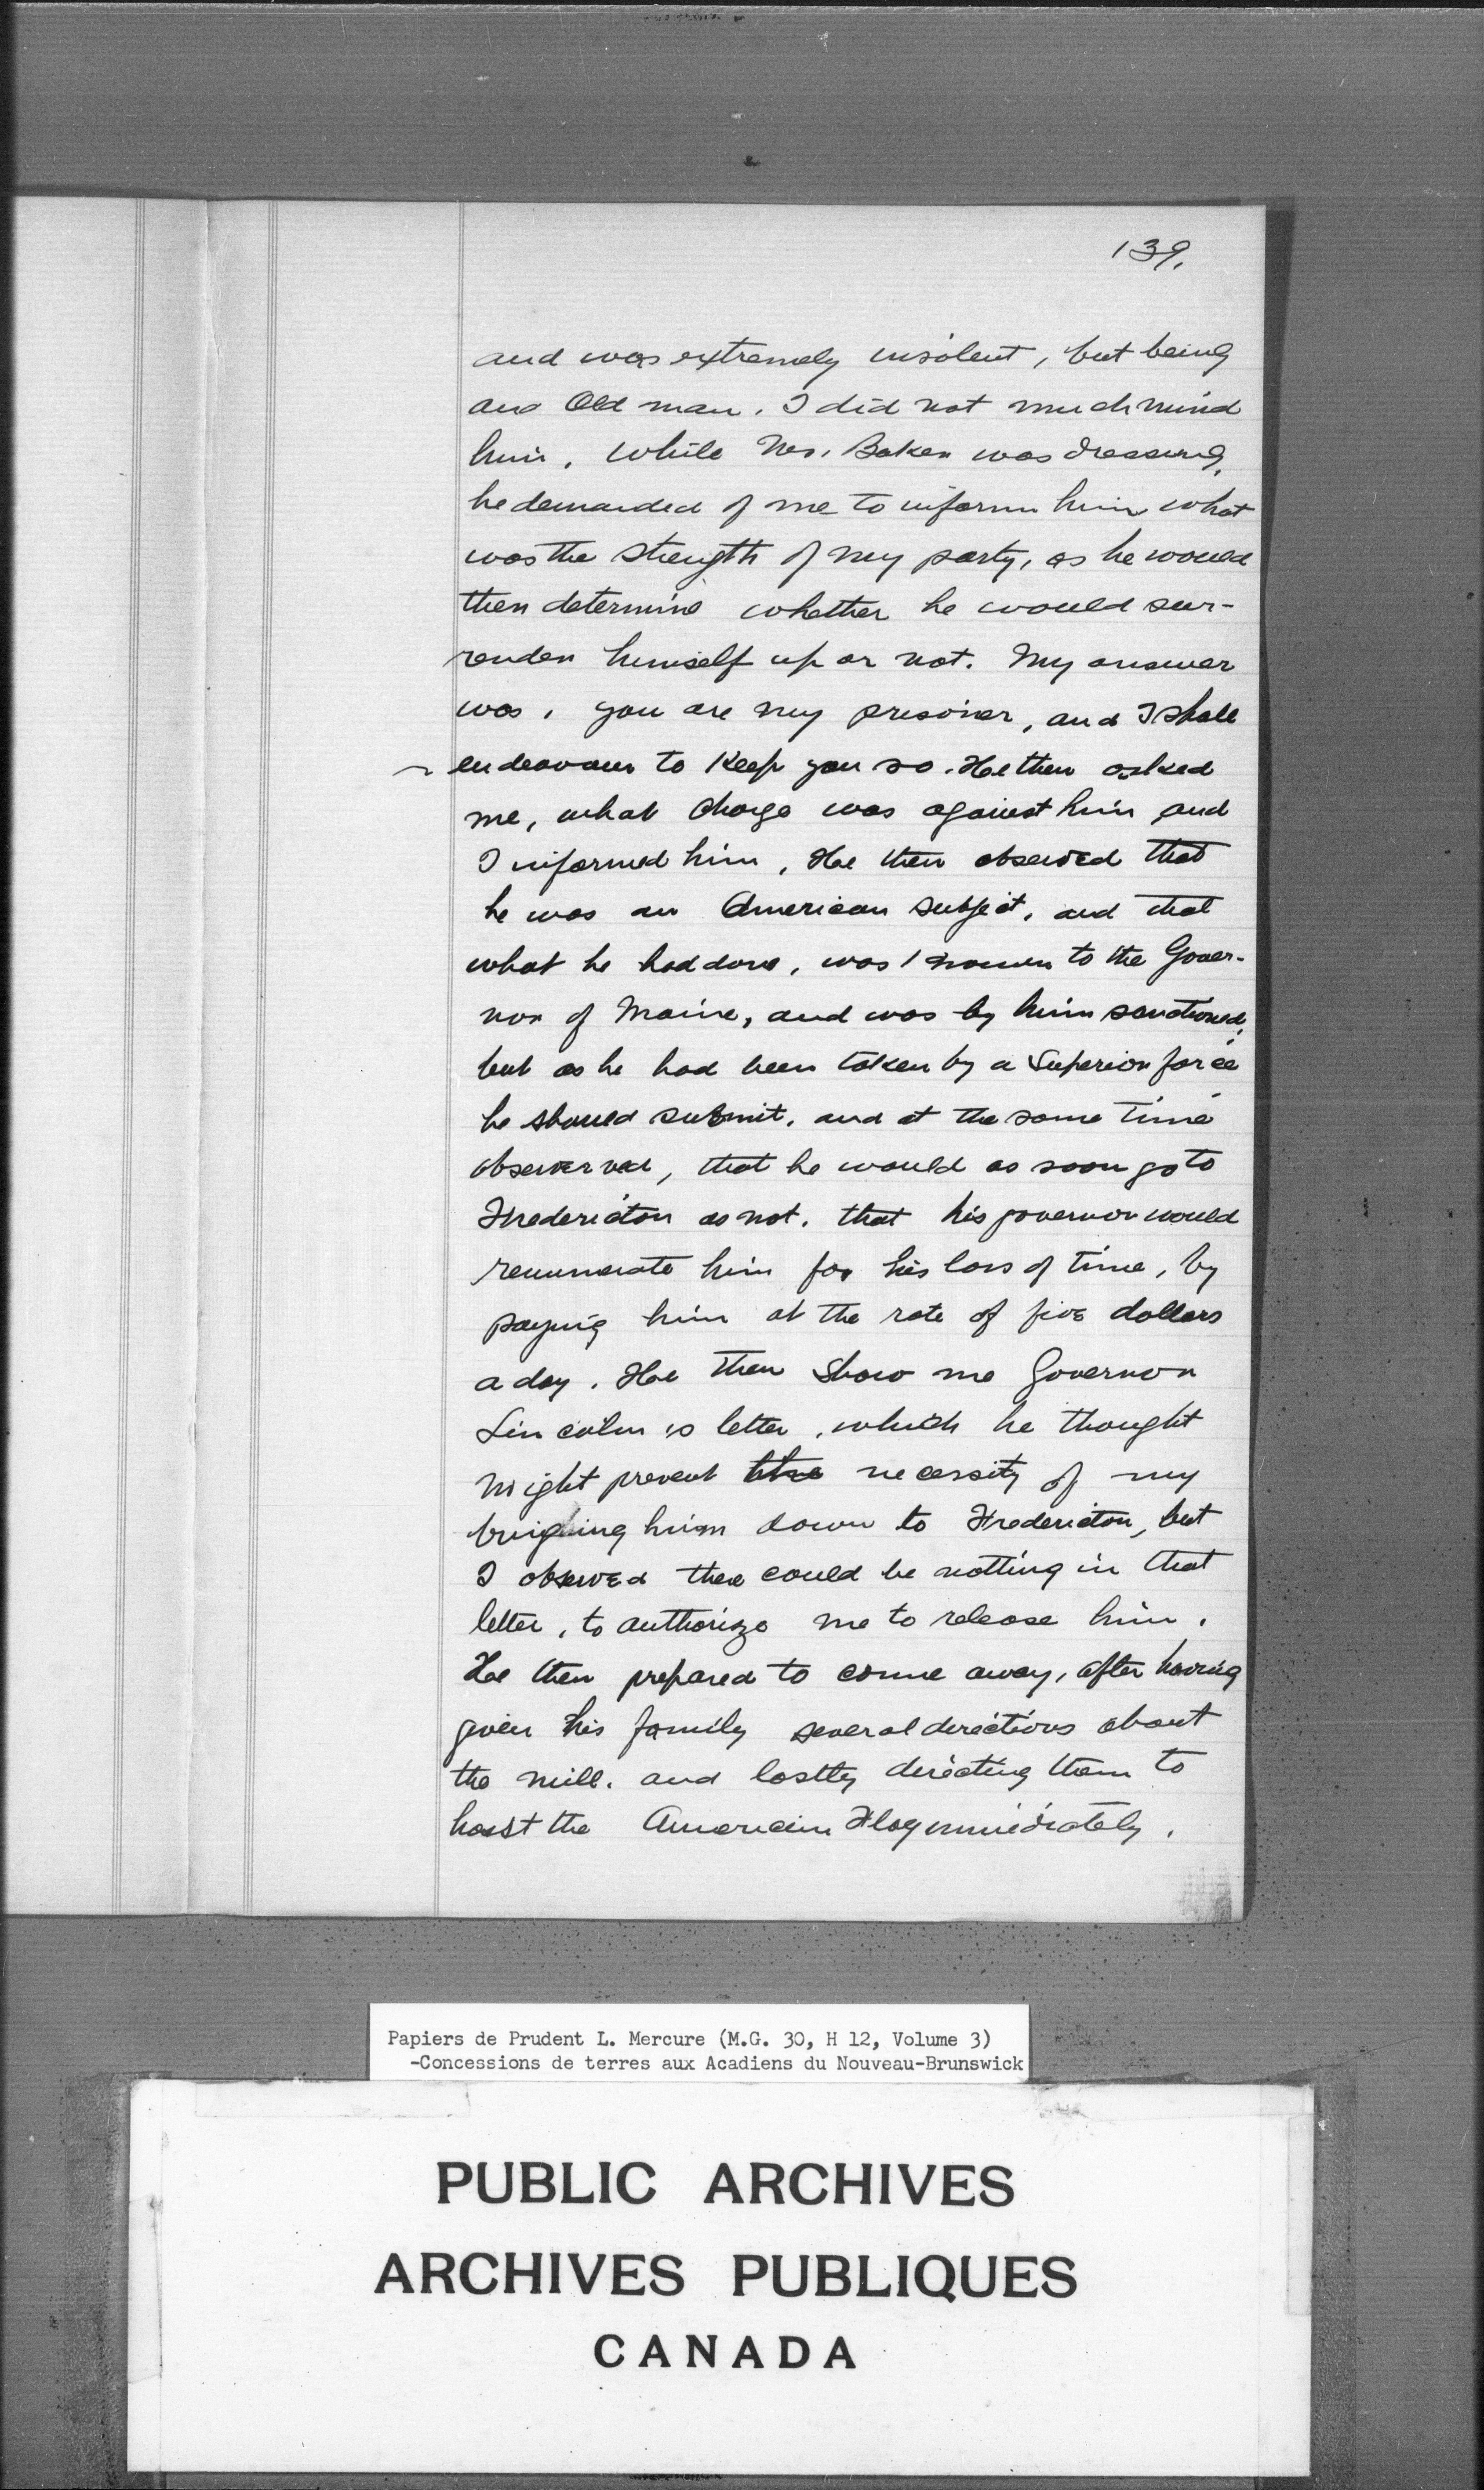 139.
and was extremely insolent, but being
an Old man. I did not much mind
him. While Mr. Baker was dressing,
he demanded of me to inform him what
was the strength of my party, as he would
then determine whether he would sur-
render himself up or not. My answer
was, you are my prisoner, and I shall
endeavour to keep you so. He then asked
me, what charge was against him and
I informed him, He then observed that
he was an American subject, and that
what he had done, was known to the Gover-
nor of Maine, and was by him sanctioned,
but as he had been taken by a Superior force
he should submit, and at the same time
observed, that he would as soon go to
Fredericton as not. that his governor would
remunerate him for his loss of time, by
paying him at the rate of five dollars
a day. He then show me Governor
Lincoln's letter, which he thought
might prevent the necessity of my
bringing him down to Fredericton, but
I observed there could be nothing in that
letter, to authorize me to release him.
He then prepared to come away, after having
given his family several directions about
the mill. and lastly directing them to
hoist the American Flag immediately.
Papiers de Prudent L. Mercure (M.G. 30, H 12, Volume 3)
-Concessions de terres aux Acadiens du Nouveau-Brunswick
PUBLIC ARCHIVES
ARCHIVES PUBLIQUES
CANADA